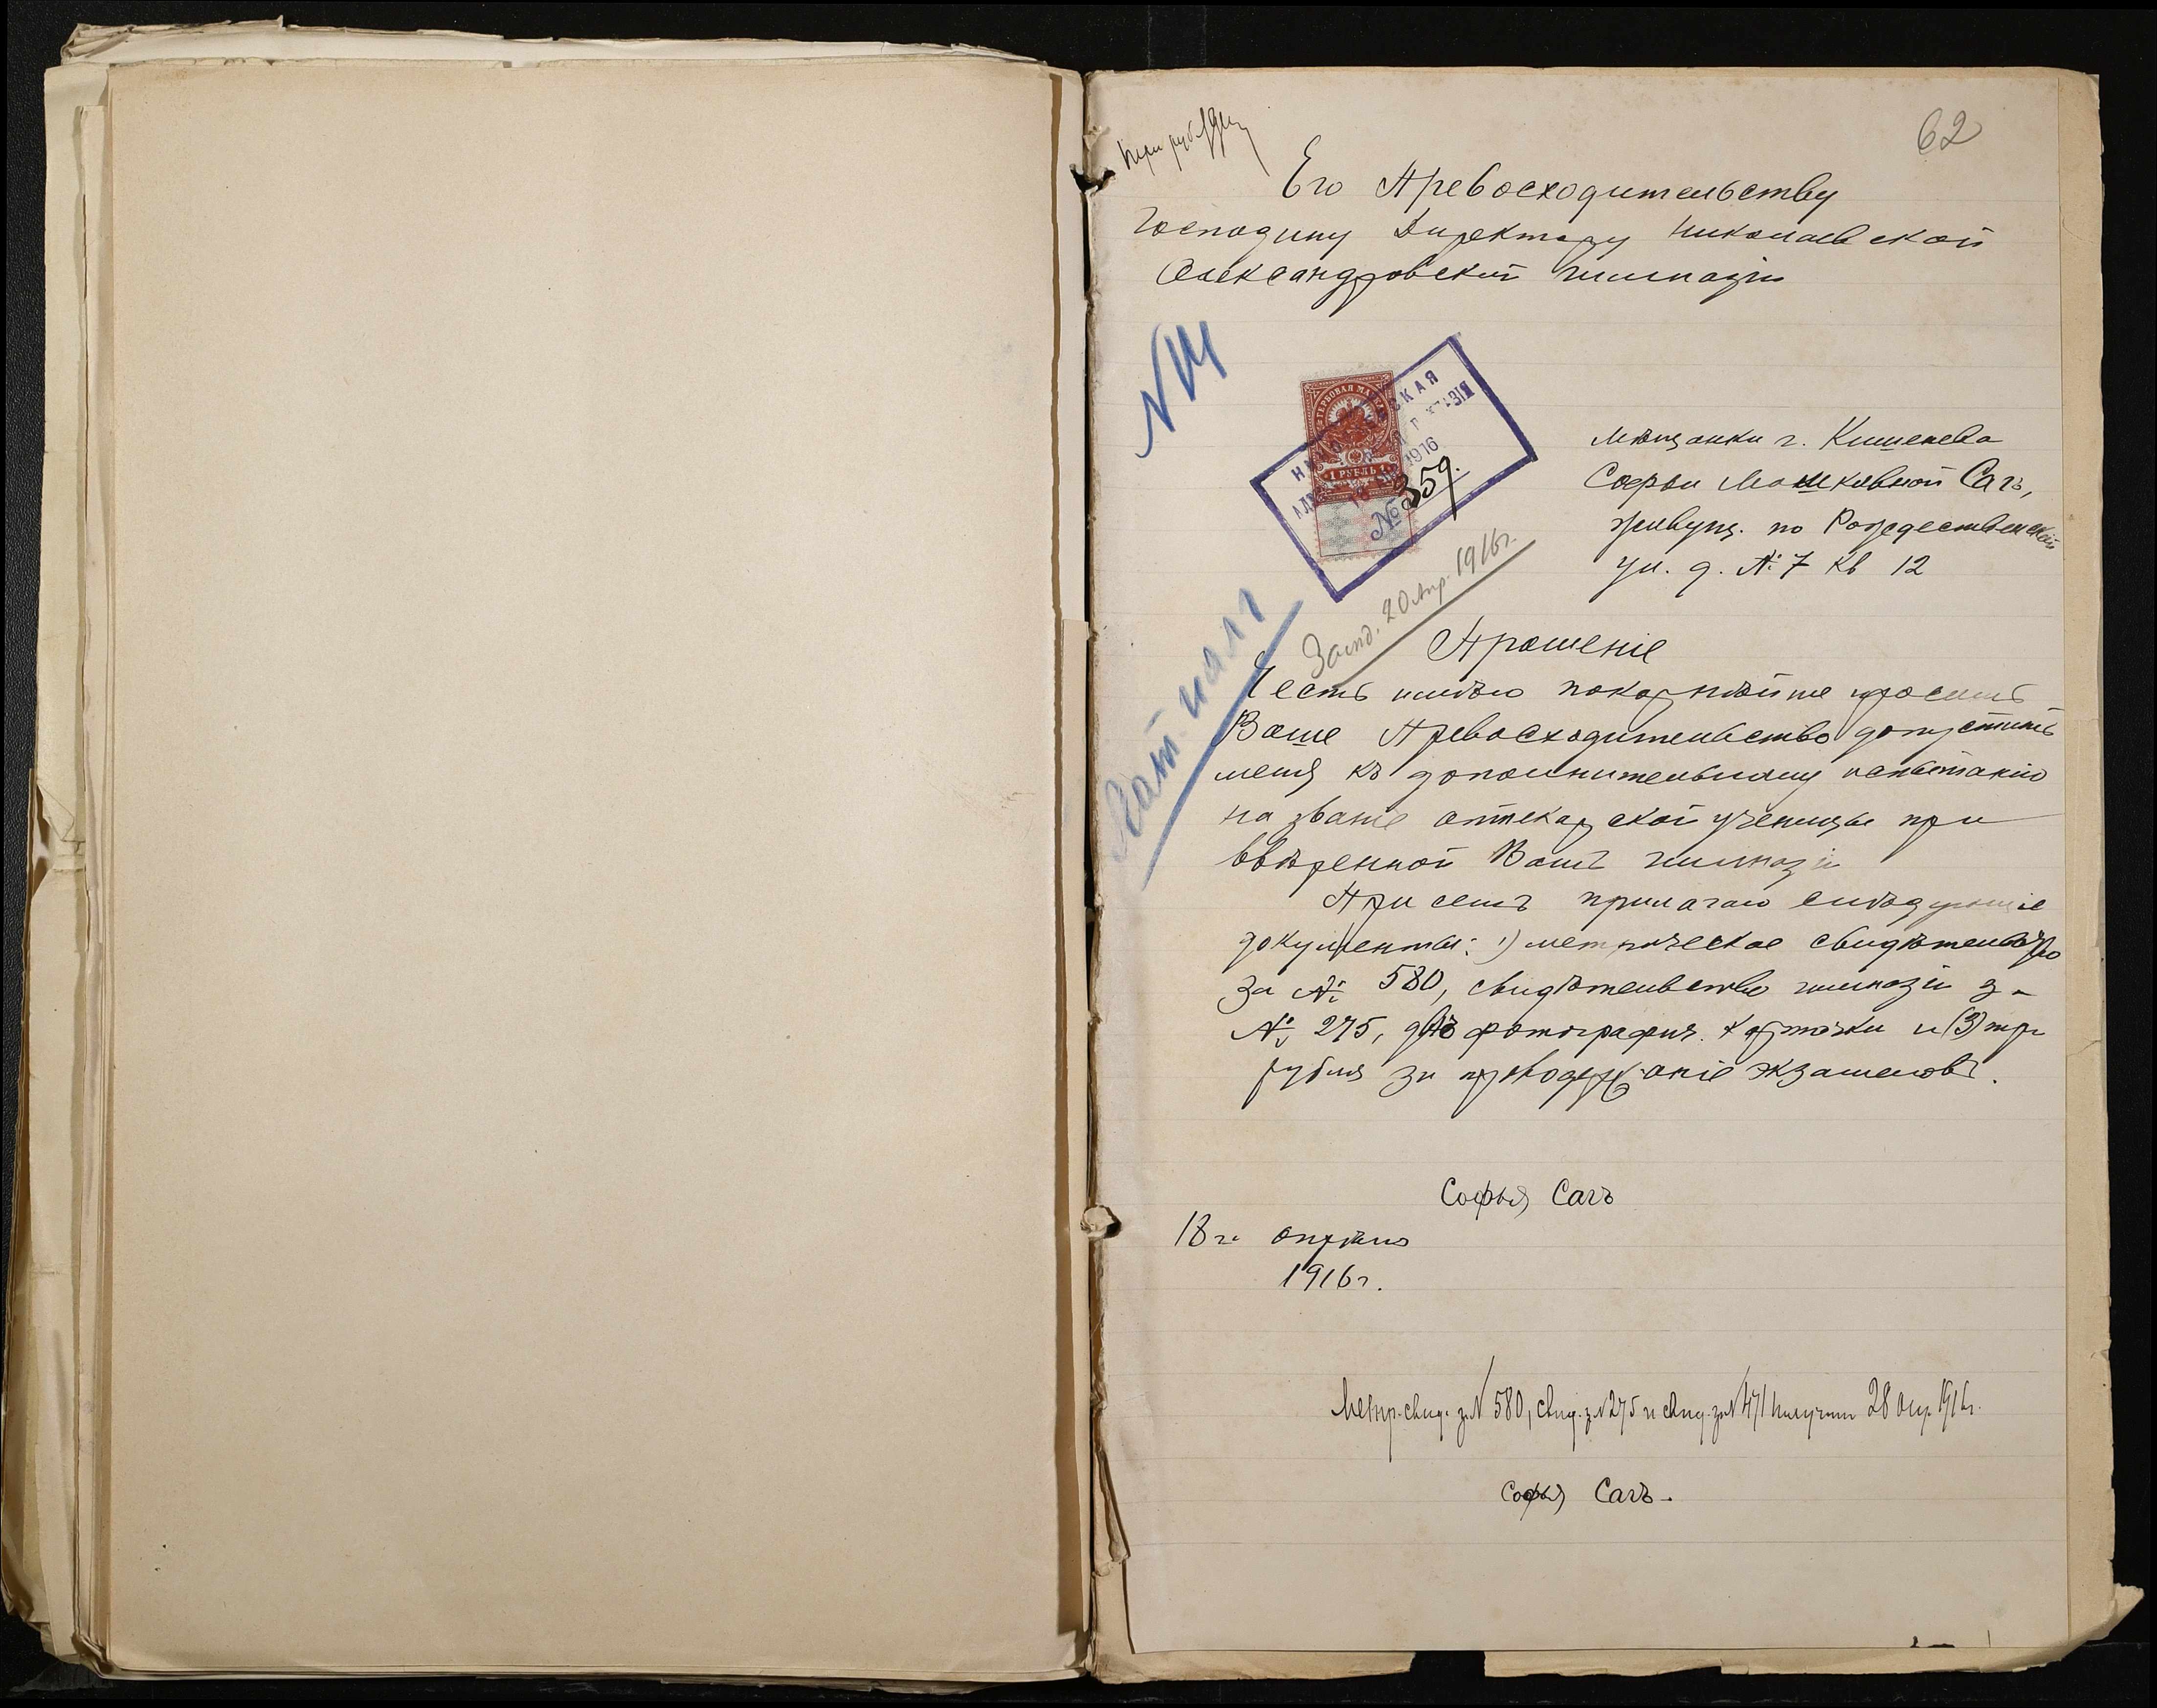 62
Его Превосходительству
Господину Директору Николаевской
Александровской гимназіи
ГЕРБОВАЯ МАРКА
1 РУБЛЬ 1
1916
№ 359.
Мѣщанки г. Кишенева
Софьи Мошковной Сагъ,
живущ. по Рождественской
ул. д. № 7 кв 12
20 Апр. 1916г.
Прошеніе
Честь имѣю покорнѣйше просить
Ваше Превосходительство допустить
меня къ дополнительному испытанію
на званіе аптекарской ученицы при
ввѣренной Вамъ гимназіи
При семъ прилагаю слѣдующіе
документы: 1) метрическое свидѣтельство
за № 580, свидѣтельство гимназіи за
№ 275, двѣ фотографич. карточки и (3) три
рубля за экзаменовъ.
Софья Сагъ
18го апрѣля
1916г.
Метр. свид. за № 580, свид. за № 275 и свид. за № 471 получила 28 Апр. 1916г.
Софья Сагъ.